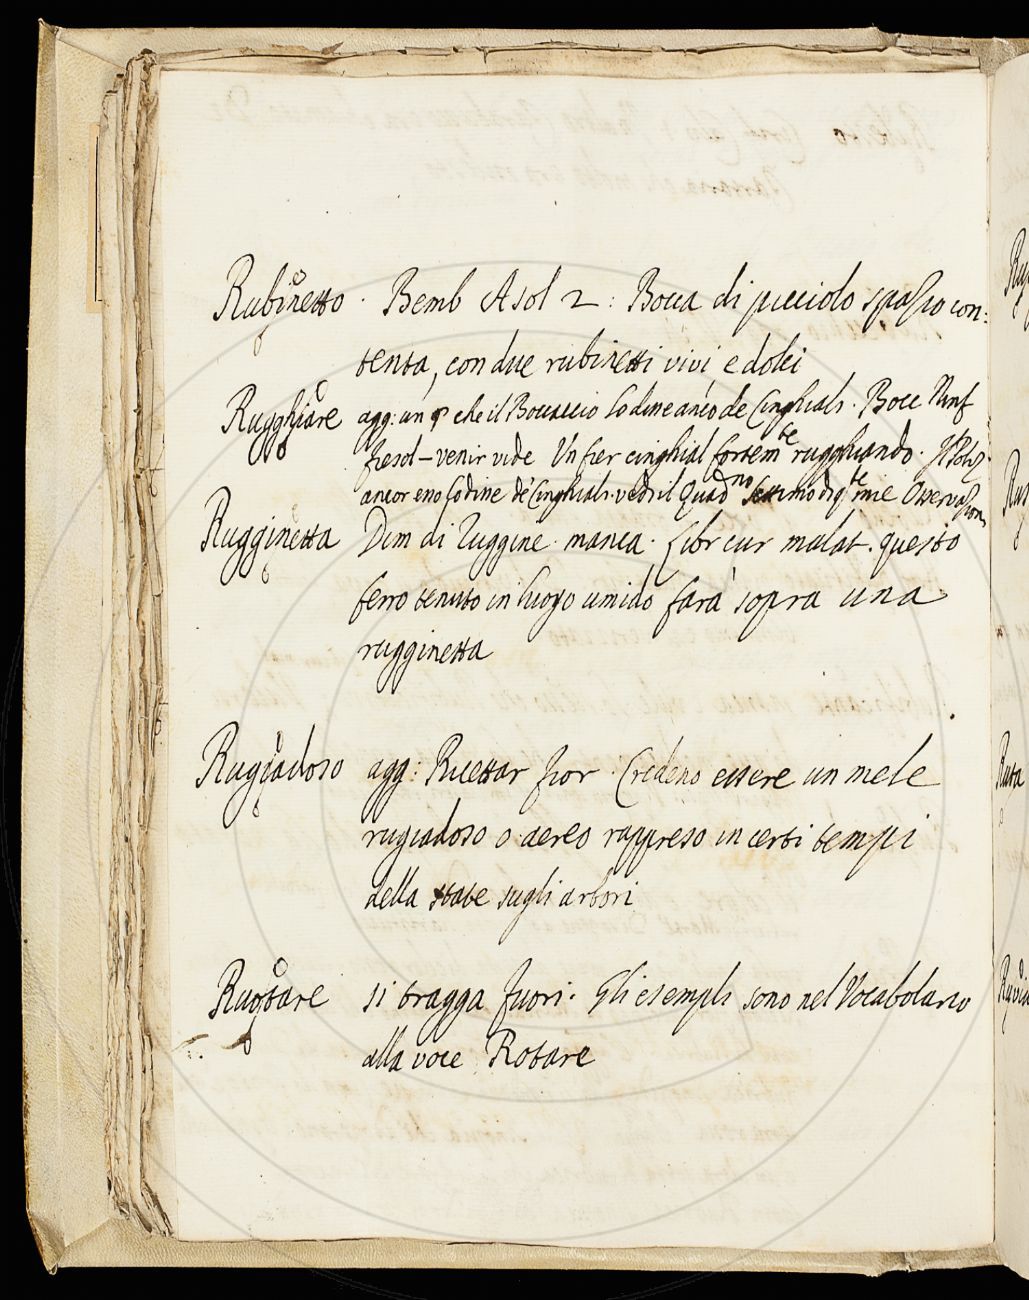 Rubinetto. Bemb Asol 2: Bocca di picciolo spazio con:
tenta, con due rubinetti vivi e dolci
Rugghiare agg: un che il Boccaccio lo dine anco de Cinghiali. Bocc Ninf
fiesol – venir vide Un fier cinghial fortemte rugghiando.
ancor eno lo dine de Cinghiali. vedi il Quadno settimo di qte mie Osservazioni
Rugginetta Dim di Ruggine. manca. Libr cur malat. questo
ferro tenuto in luogo umido farà sopra una
rugginetta
Rugiadoso agg: Ricettar fior. Credeno essere un mele
rugiadoso o aereo rappreso in certi tempi
della state sugli arbori
Ruotare si tragga fuori. Gli esempli sono nel Vocabolario
alla voce Rotare